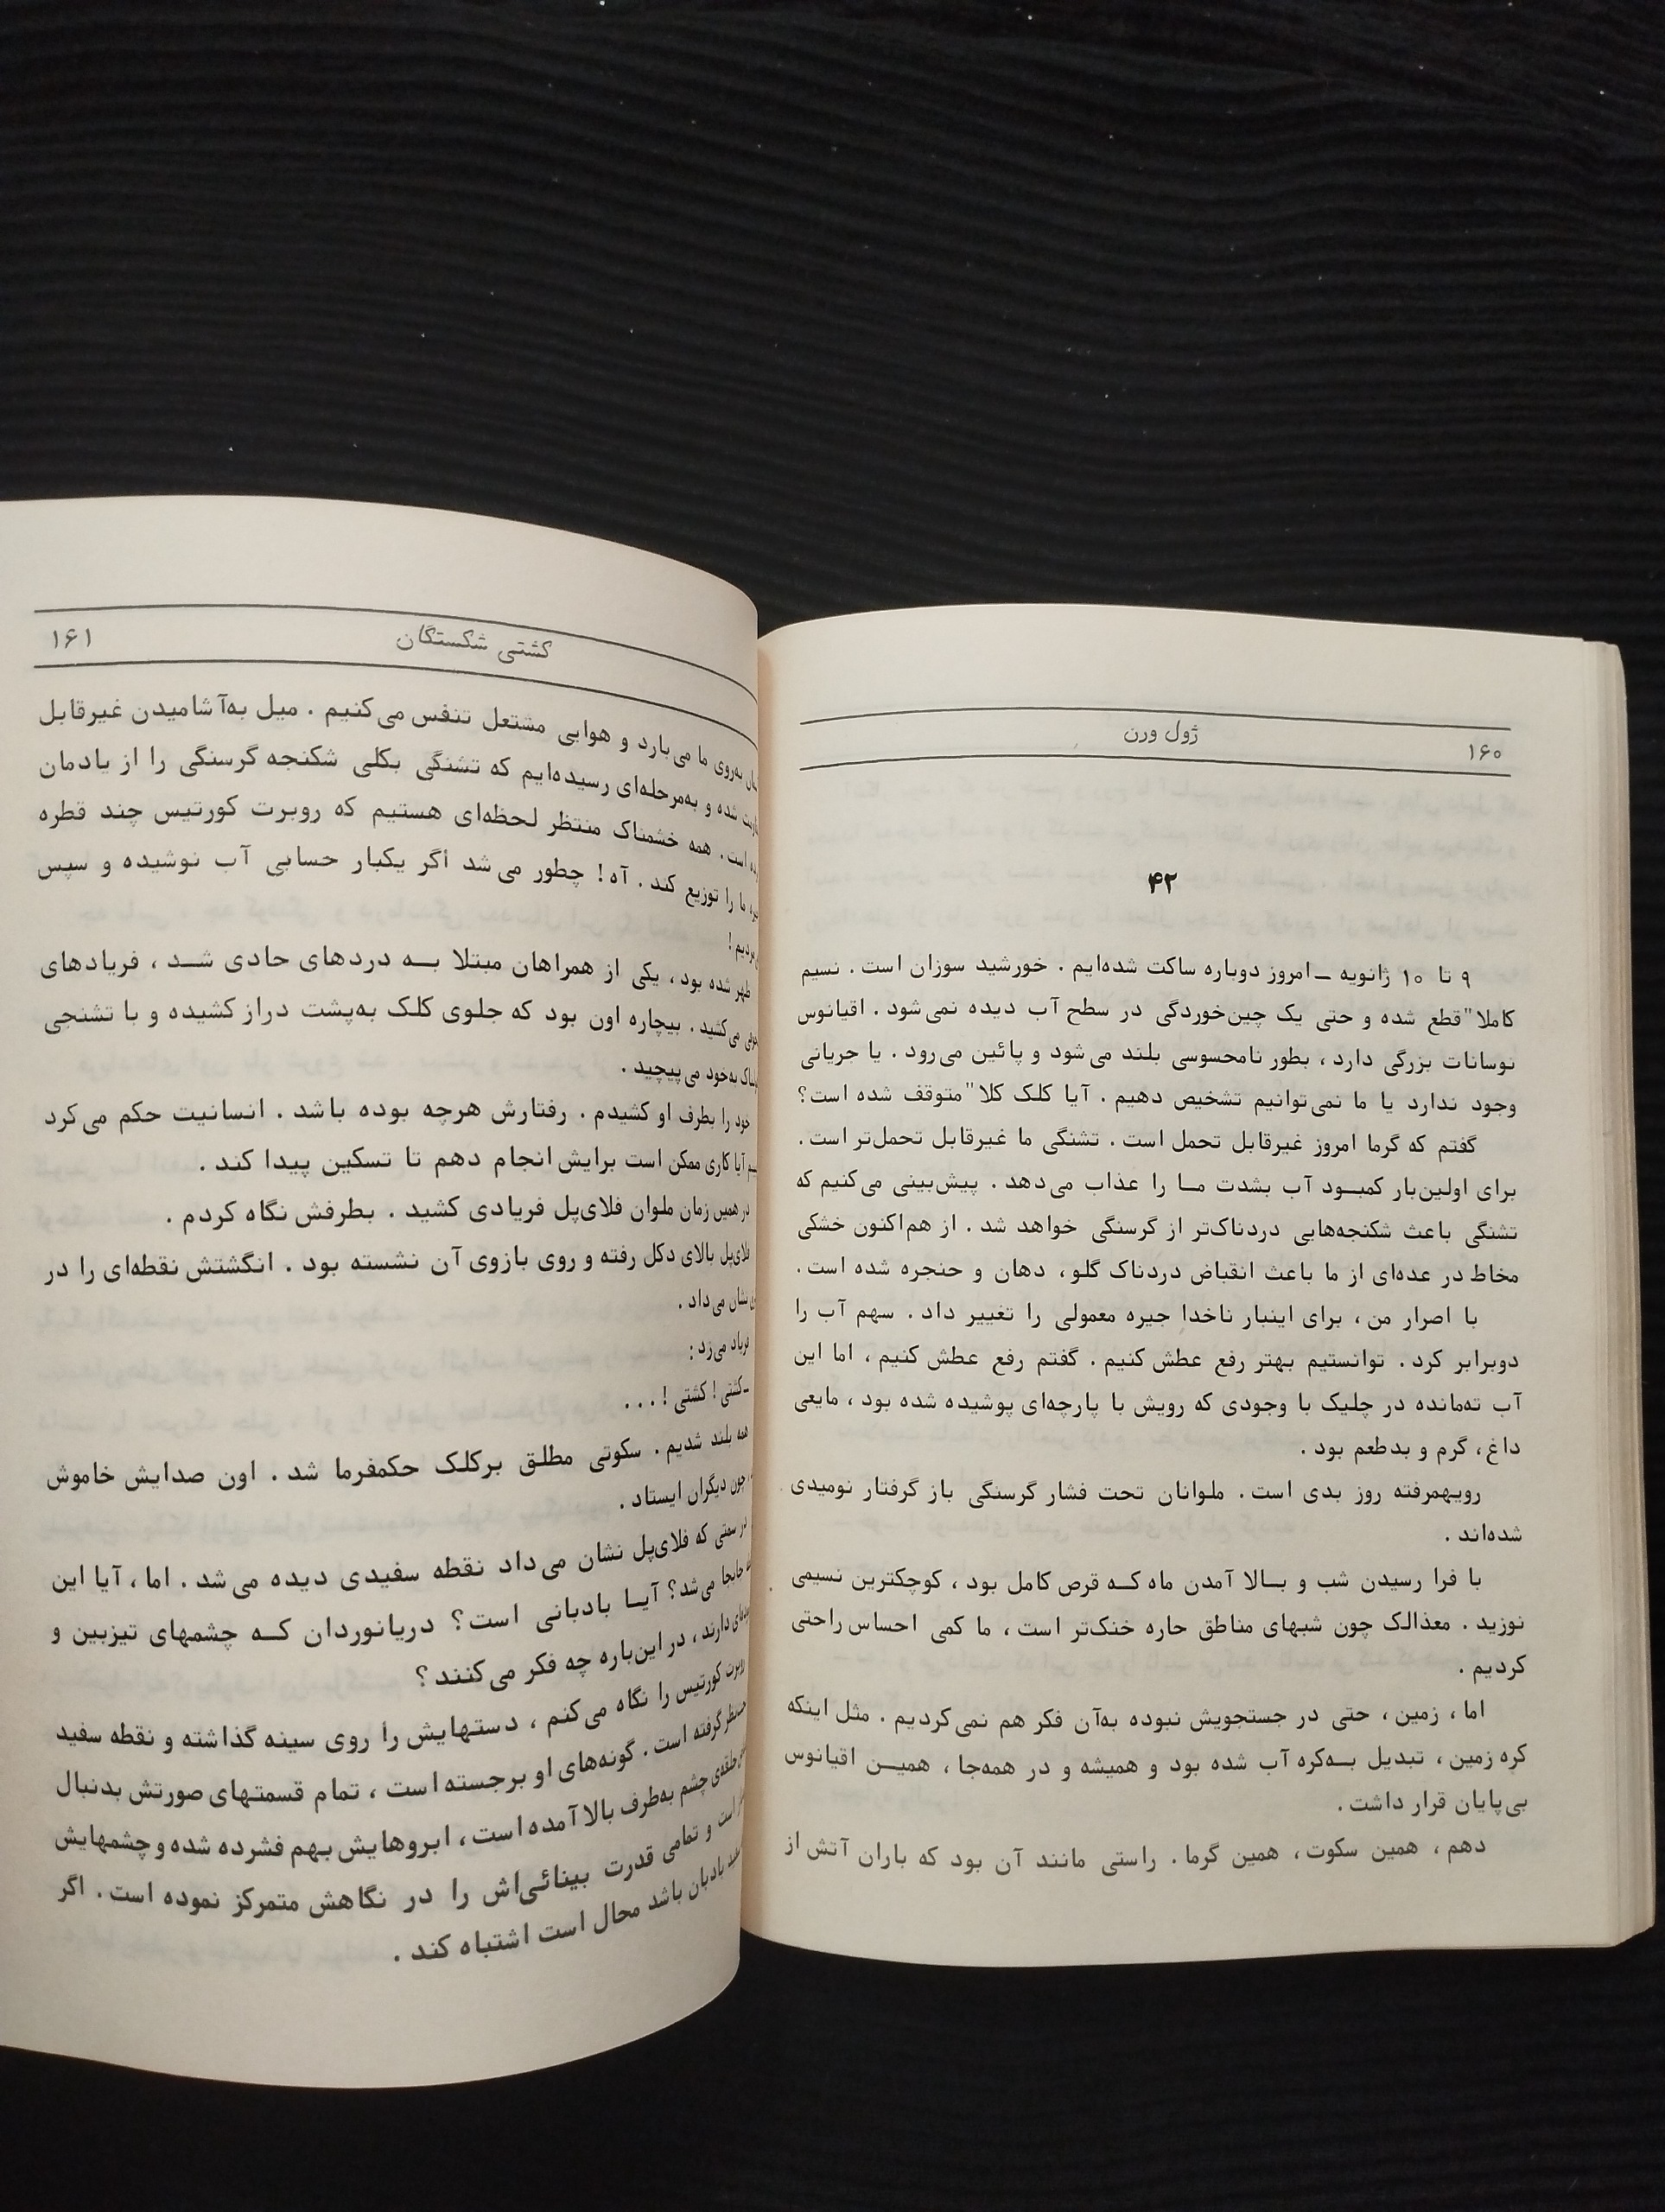 ۱۶۰
ژول ورن
۴۲
۹ تا ۱۰ ژانویه ــ امروز دوباره ساکت شده‌ایم . خورشید سوزان است . نسیم
کاملا" قطع شده و حتی یک چین‌خوردگی در سطح آب دیده نمی‌شود . اقیانوس
نوسانات بزرگی دارد ، بطور نامحسوسی بلند می‌شود و پائین می‌رود . یا جریانی
وجود ندارد یا ما نمی‌توانیم تشخیص دهیم . آیا کلک کلا" متوقف شده است؟
گفتم که گرما امروز غیرقابل تحمل است . تشنگی ما غیرقابل تحمل‌تر است .
برای اولین‌بار کمبـود آب بشدت مـا را عذاب می‌دهد . پیش‌بینی می‌کنیم که
تشنگی باعث شکنجه‌هایی دردناک‌تر از گرسنگی خواهد شد . از هم‌اکنون خشکی
مخاط در عده‌ای از ما باعث انقباض دردناک گلو ، دهان و حنجره شده است .
با اصرار من ، برای اینبار ناخدا جیره معمولی را تغییر داد . سهم آب را
دوبرابر کرد . توانستیم بهتر رفع عطش کنیم . گفتم رفع عطش کنیم ، اما این
آب ته‌مانده در چلیک با وجودی که رویش با پارچه‌ای پوشیده شده بود ، مایعی
داغ ، گرم و بدطعم بود .
رویهمرفته روز بدی است . ملوانان تحت فشار گرسنگی باز گرفتار نومیدی
شده‌اند .
با فرا رسیدن شب و بـالا آمدن ماه کـه قرص کامل بود ، کوچکترین نسیمی
نوزید . معذالک چون شبهای مناطق حاره خنک‌تر است ، ما کمی احساس راحتی
کردیم .
اما ، زمین ، حتی در جستجویش نبوده به‌آن فکر هم نمی‌کردیم . مثل اینکه
کره زمین ، تبدیل بـه‌کره آب شده بود و همیشه و در همه‌جا ، همیـن اقیانوس
بی‌پایان قرار داشت .
دهم ، همین سکوت ، همین گرما . راستی مانند آن بود که باران آتش از
کشتی شکستگان
۱۶۱
به‌روی ما می‌بارد و هوایی مشتعل تنفس می‌کنیم . میل به‌آشامیدن غیرقابل
شده و به‌مرحله‌ای رسیده‌ایم که تشنگی بکلی شکنجه گرسنگی را از یادمان
است . همه خشمناک منتظر لحظه‌ای هستیم که روبرت کورتیس چند قطره
ما را توزیع کند . آه ! چطور می‌شد اگر یکبار حسابی آب نوشیده و سپس
!
ظهر شده بود ، یکی از همراهان مبتلا بـه دردهای حادی شـد ، فریادهای
می‌کشید . بیچاره اون بود که جلوی کلک به‌پشت دراز کشیده و با تشنجی
به‌خود می‌پیچید .
خود را بطرف او کشیدم . رفتارش هرچه بوده باشد . انسانیت حکم می‌کرد
آیا کاری ممکن است برایش انجام دهم تا تسکین پیدا کند .
در همین زمان ملوان فلای‌پل فریادی کشید . بطرفش نگاه کردم .
فلای‌پل بالای دکل رفته و روی بازوی آن نشسته بود . انگشتش نقطه‌ای را در
نشان می‌داد .
فریاد می‌زد :
ــ کشتی ! کشتی ! . . .
همه بلند شدیم . سکوتی مطلق برکلک حکمفرما شد . اون صدایش خاموش
چون دیگران ایستاد .
در سمتی که فلای‌پل نشان می‌داد نقطه سفیدی دیده می‌شد . اما ، آیا این
جابجا می‌شد؟ آیـا بادبانی است؟ دریانوردان کـه چشمهای تیزبین و
دارند ، در این‌باره چه فکر می‌کنند ؟
روبرت کورتیس را نگاه می‌کنم ، دستهایش را روی سینه گذاشته و نقطه سفید
گرفته است . گونه‌های او برجسته است ، تمام قسمتهای صورتش بدنبال
حلقه‌ی چشم به‌طرف بالا آمده است ، ابروهایش بهم فشرده شده و چشمهایش
است و تمامی قدرت بینائی‌اش را در نگاهش متمرکز نموده است . اگر
بادبان باشد محال است اشتباه کند .